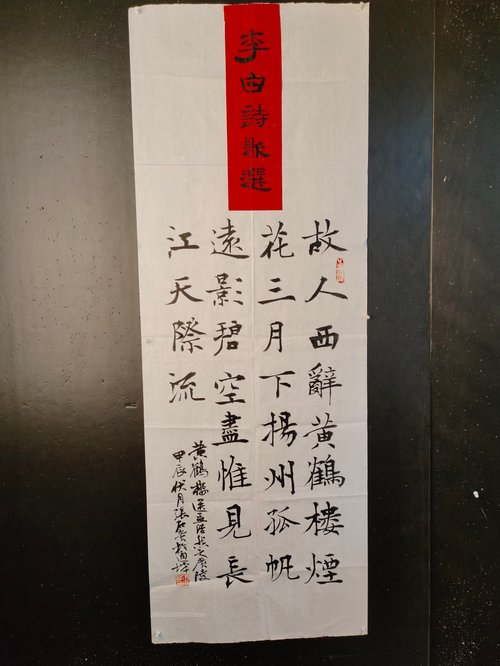 李白詩歌選
故人西辭黃鶴樓煙
花三月下揚州孤帆
遠影碧空盡惟見長
江天際流
黄鶴樓送孟浩然之廣陵
甲辰伏月張